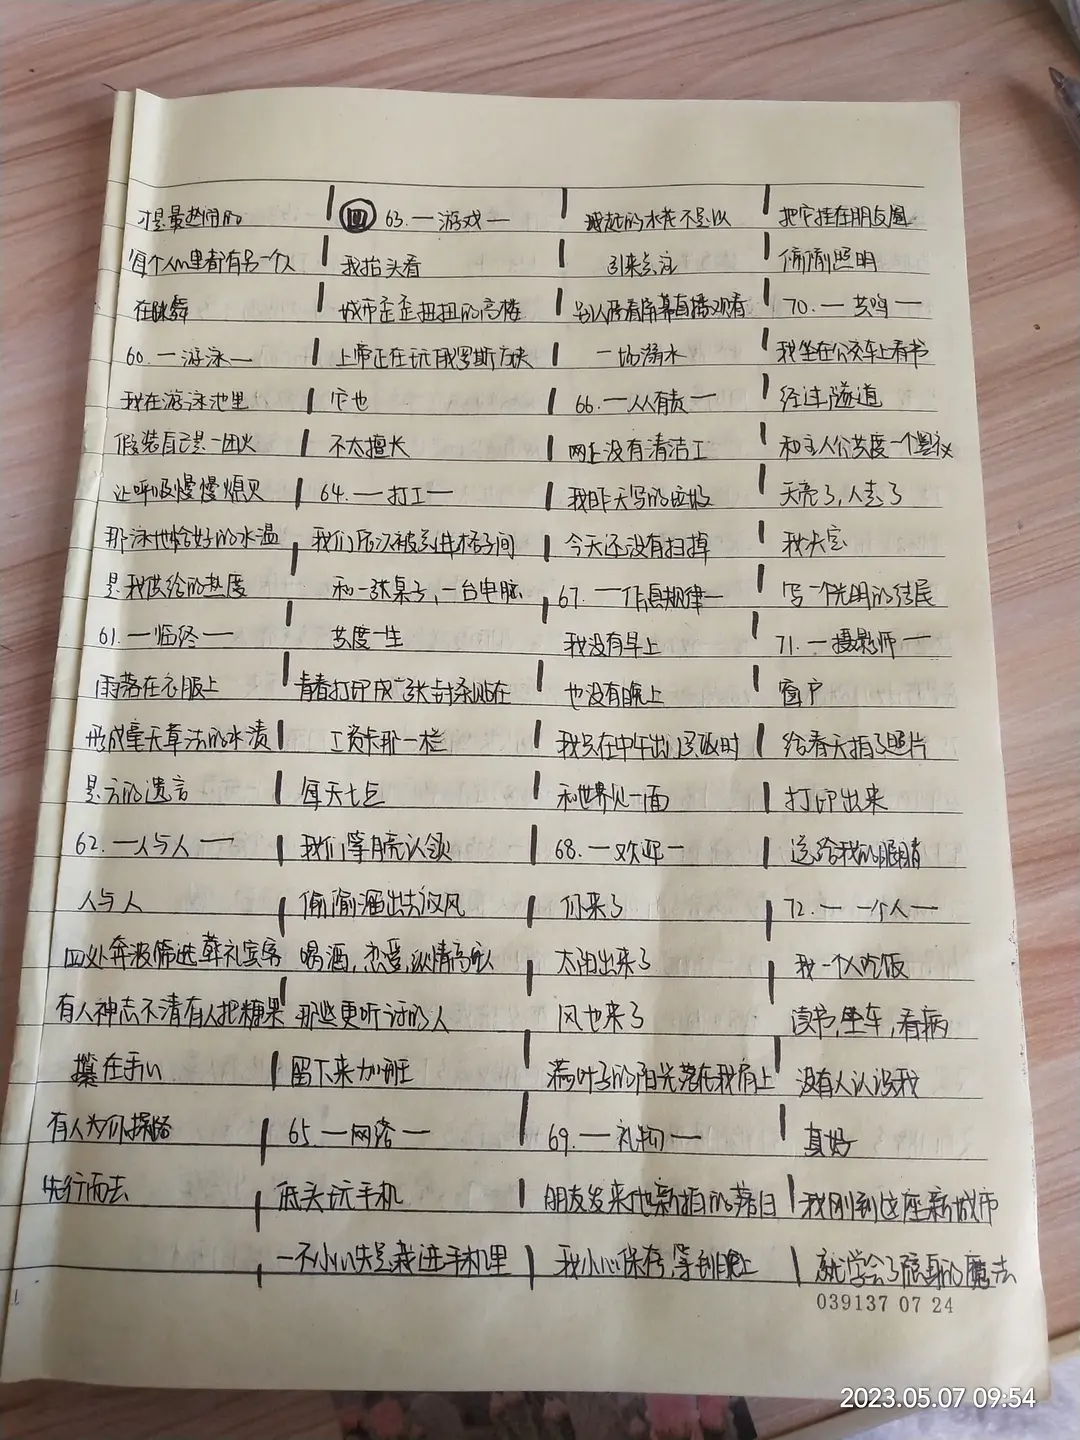 才是最热闹的
每个人心里都有另一个人
在跳舞
60.一游泳一
我在游泳池里
假装自己是一团火
让呼吸慢慢熄灭
那泳池恰好的水温
是我供给的热度
61.一临终一
雨落在衣服上
形成毫无章法的水渍
是云的遗言
62.一人与人一
人与人
四处奔波筛选葬礼宾客
有人神志不清有人把糖果
攥在手心
有人为你探路
先行而去
四 63.一游戏一
我抬头看
城市歪歪扭扭的高楼
上帝正在玩俄罗斯方块
它也
不太擅长
64.一打工一
我们依次被关进格子间
和一张桌子,一台电脑
共度一生
青春打印成一张封条贴在
工资卡那一栏
每天七点
我们掌月亮认领
偷偷溜出去放风
喝酒,恋爱,纵情高歌
那些更听话的人
留下来加班
65.一网络一
低头玩手机
一不小心失足栽进手机里
溅起的水花不足以
引来关注
别人隔着屏幕直播观看
一场溺水
66.一人人有责一
网上没有清洁工
我昨天写的垃圾
今天还没有扫掉
67.一作息规律一
我没有早上
也没有晚上
我只在中午出门吃饭时
和世界见一面
68.一欢迎一
你来了
太阳出来了
风也来了
满叶子的阳光落在我肩上
69.一礼物一
朋友发来他新拍的落日
我小心保存,等到晚上
把它挂在朋友圈
偷偷照明
70.一共鸣一
我坐在公交车上看书
经过隧道
和主人公共度一个黑夜
天亮了,人走了
我决定
写一个光明的结尾
71.一摄影师一
窗户
给春天拍了照片
打印出来
送给我的眼睛
72.一一个人一
我一个人吃饭
读书,坐车,看病
没有人认识我
真好
我刚到这座新城市
就学会了隐身的魔法
039137 07 24
2023.05.07 09:54